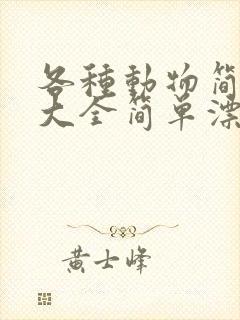 各種動物简
大全简单漂
黄士峰